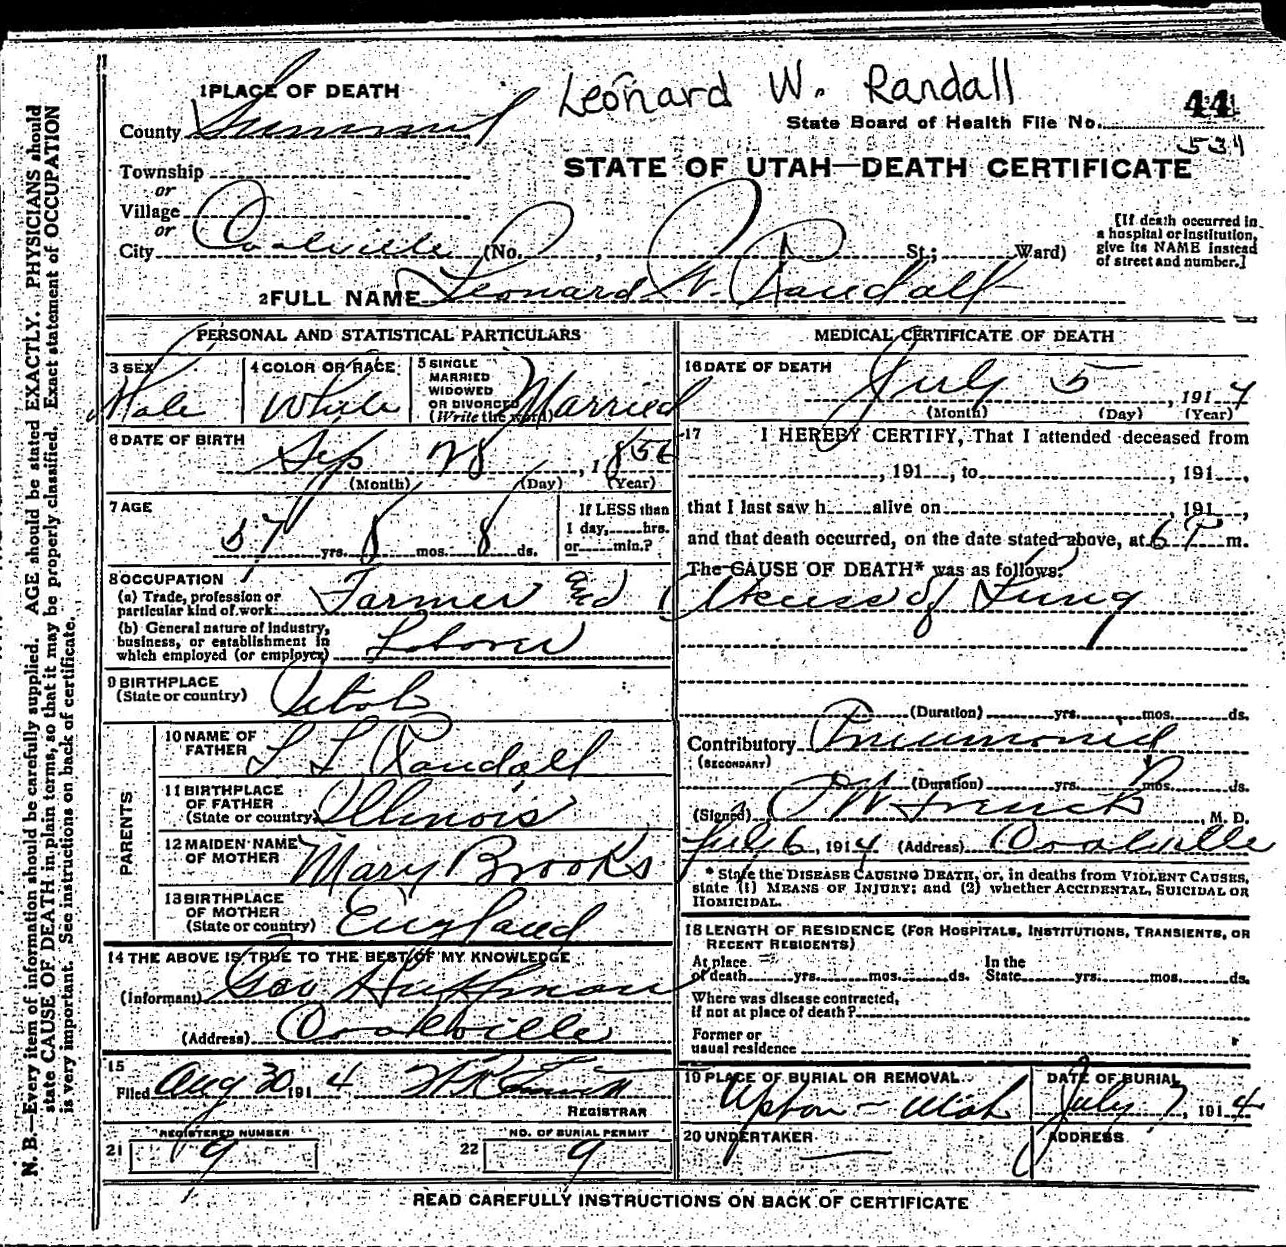 Leonard W. Randall
44
1 PLACE OF DEATH
County Summit
State Board of Health File No.
534
STATE OF UTAH—DEATH CERTIFICATE
Township
or
Village
or
City Coalville (No. , St.; Ward)
[If death occurred in
a hospital or institution,
give its NAME instead
of street and number.]
2 FULL NAME Leonard W. Randall
PERSONAL AND STATISTICAL PARTICULARS
3 SEX
Male
4 COLOR OR RACE
White
5 SINGLE
MARRIED
WIDOWED
OR DIVORCED
(Write the word)
Married
6 DATE OF BIRTH
Sep 28, 1856
(Month) (Day) (Year)
7 AGE
57 yrs. 8 mos. 8 ds.
If LESS than
1 day, hrs.
or min.?
8 OCCUPATION
(a) Trade, profession or
particular kind of work Farmer and
(b) General nature of industry,
business, or establishment in
which employed (or employer) Laborer
9 BIRTHPLACE
(State or country) Utah
PARENTS
10 NAME OF
FATHER L L Randall
11 BIRTHPLACE
OF FATHER
(State or country) Illinois
12 MAIDEN NAME
OF MOTHER Mary Brooks
13 BIRTHPLACE
OF MOTHER
(State or country) England
14 THE ABOVE IS TRUE TO THE BEST OF MY KNOWLEDGE
(Informant) Geo Huffman
(Address) Coalville
15
Filed Aug 30 1914
REGISTRAR
REGISTERED NUMBER
21 9
NO. OF BURIAL PERMIT
22 9
MEDICAL CERTIFICATE OF DEATH
16 DATE OF DEATH
July 5, 1914
(Month) (Day) (Year)
17 I HEREBY CERTIFY, That I attended deceased from
, 191 , to , 191 ,
that I last saw h alive on , 191 ,
and that death occurred, on the date stated above, at 6 P m.
The CAUSE OF DEATH* was as follows:
of Lung
(Duration) yrs. mos. ds.
Contributory Pneumonia
(SECONDARY)
(Duration) yrs. mos. ds.
(Signed) , M. D.
July 6, 1914 (Address) Coalville
* State the DISEASE CAUSING DEATH, or, in deaths from VIOLENT CAUSES,
state (1) MEANS OF INJURY; and (2) whether ACCIDENTAL, SUICIDAL OR
HOMICIDAL.
18 LENGTH OF RESIDENCE (FOR HOSPITALS, INSTITUTIONS, TRANSIENTS, OR
RECENT RESIDENTS)
At place
of death yrs. mos. ds.
In the
State yrs. mos. ds.
Where was disease contracted,
if not at place of death?
Former or
usual residence
19 PLACE OF BURIAL OR REMOVAL
Upton - Utah
DATE OF BURIAL
July 7, 1914
20 UNDERTAKER
ADDRESS
READ CAREFULLY INSTRUCTIONS ON BACK OF CERTIFICATE
N. B.—Every item of information should be carefully supplied. AGE should be stated EXACTLY. PHYSICIANS should
state CAUSE OF DEATH in plain terms, so that it may be properly classified. Exact statement of OCCUPATION
is very important. See instructions on back of certificate.